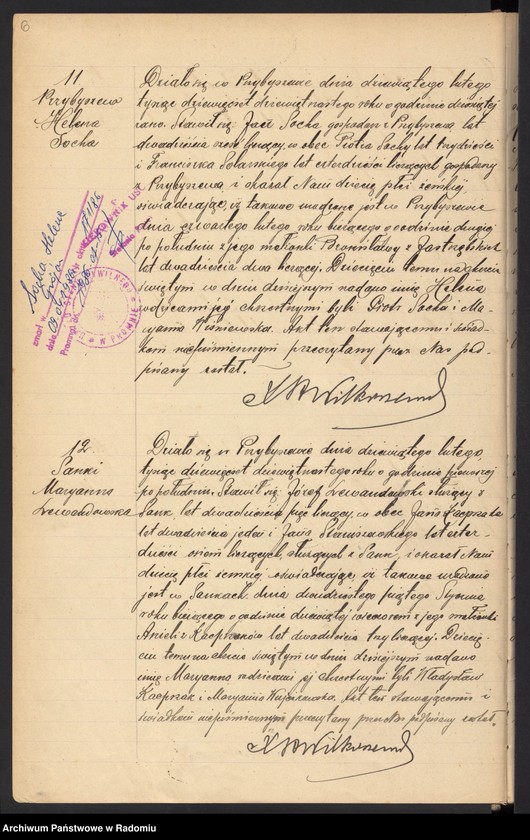 6
11
Przybyszewa
Helena
Socha
Działo się w Przybyszewie dnia dziewiątego lutego
tysiąc dziewięćset dziewiętnastego roku o godzinie dziesiątej
rano. Stawił się Jan Socha gospodarz z Przybyszewa lat
dwadzieścia osiem liczący, w obec Piotra Sochy lat trzydzieści
i Franciszka Solarskiego lat czterdzieści liczących gospodarzy
z Przybyszewa i okazał Nam dziecię płci żeńskiej
oświadczając, iż takowe urodzone jest w Przybyszewie
dnia czwartego lutego roku bieżącego o godzinie drugiej
po południu z jego małżonki Bronisławy z Jastrzębskich
lat dwadzieścia dwa liczącej. Dziecięciu temu na chrzcie
świętym w dniu dzisiejszym nadano imię Helena
rodzicami jej chrzestnymi byli Piotr Socha i Ma-
ryanna Wiśniewska. Akt ten stawającemu i świad-
kom niepiśmiennym przeczytany przez Nas pod-
pisany został.
Socha Helena
zmarł w
Grójcu
dnia
12
Panki
Maryanna
Lewandowska
Działo się w Przybyszewie dnia dziewiątego lutego
tysiąc dziewięćset dziewiętnastego roku o godzinie pierwszej
po południu. Stawił się Józef Lewandowski służący z
Pank lat dwadzieścia pięć liczący, w obec Jana Kacprzaka
lat dwadzieścia jeden i Jana Staniszewskiego lat czter-
dzieści osiem liczących, służących z Pank, i okazał Nam
dziecię płci żeńskiej, oświadczając, iż takowe urodzone
jest w Pankach, dnia dwudziestego piątego Stycznia
roku bieżącego o godzinie dziewiątej wieczorem z jego małżonki
Anieli z Kacprzaków lat dwadzieścia trzy liczącej. Dziecię-
ciu temu na chrzcie świętym w dniu dzisiejszym nadano
imię Maryanna, rodzicami jej chrzestnymi byli Władysław
Kacprzak i Maryanna Akt ten stawającemu i
świadkom niepiśmiennym przeczytany przez Nas podpisany został.
Archiwum Państwowe w Radomiu